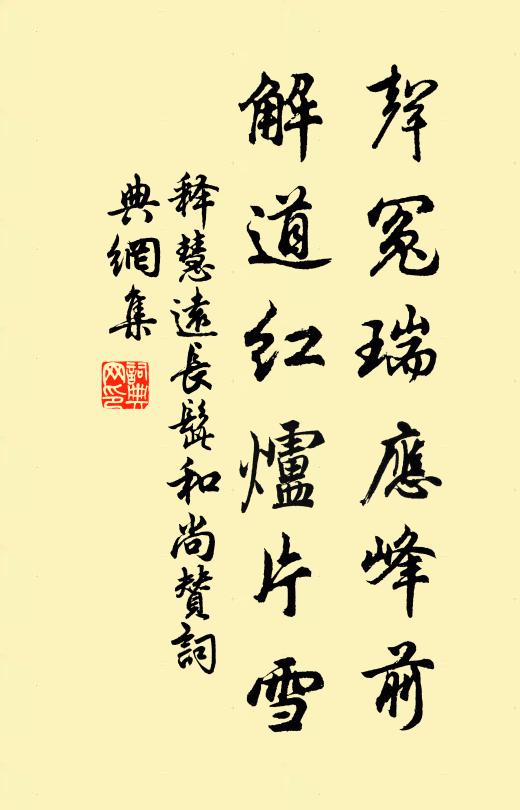 聲冤瑞應峰前
解道紅爐片雪
释慧遠長髭和尚贊詞
典網集
詞典网印